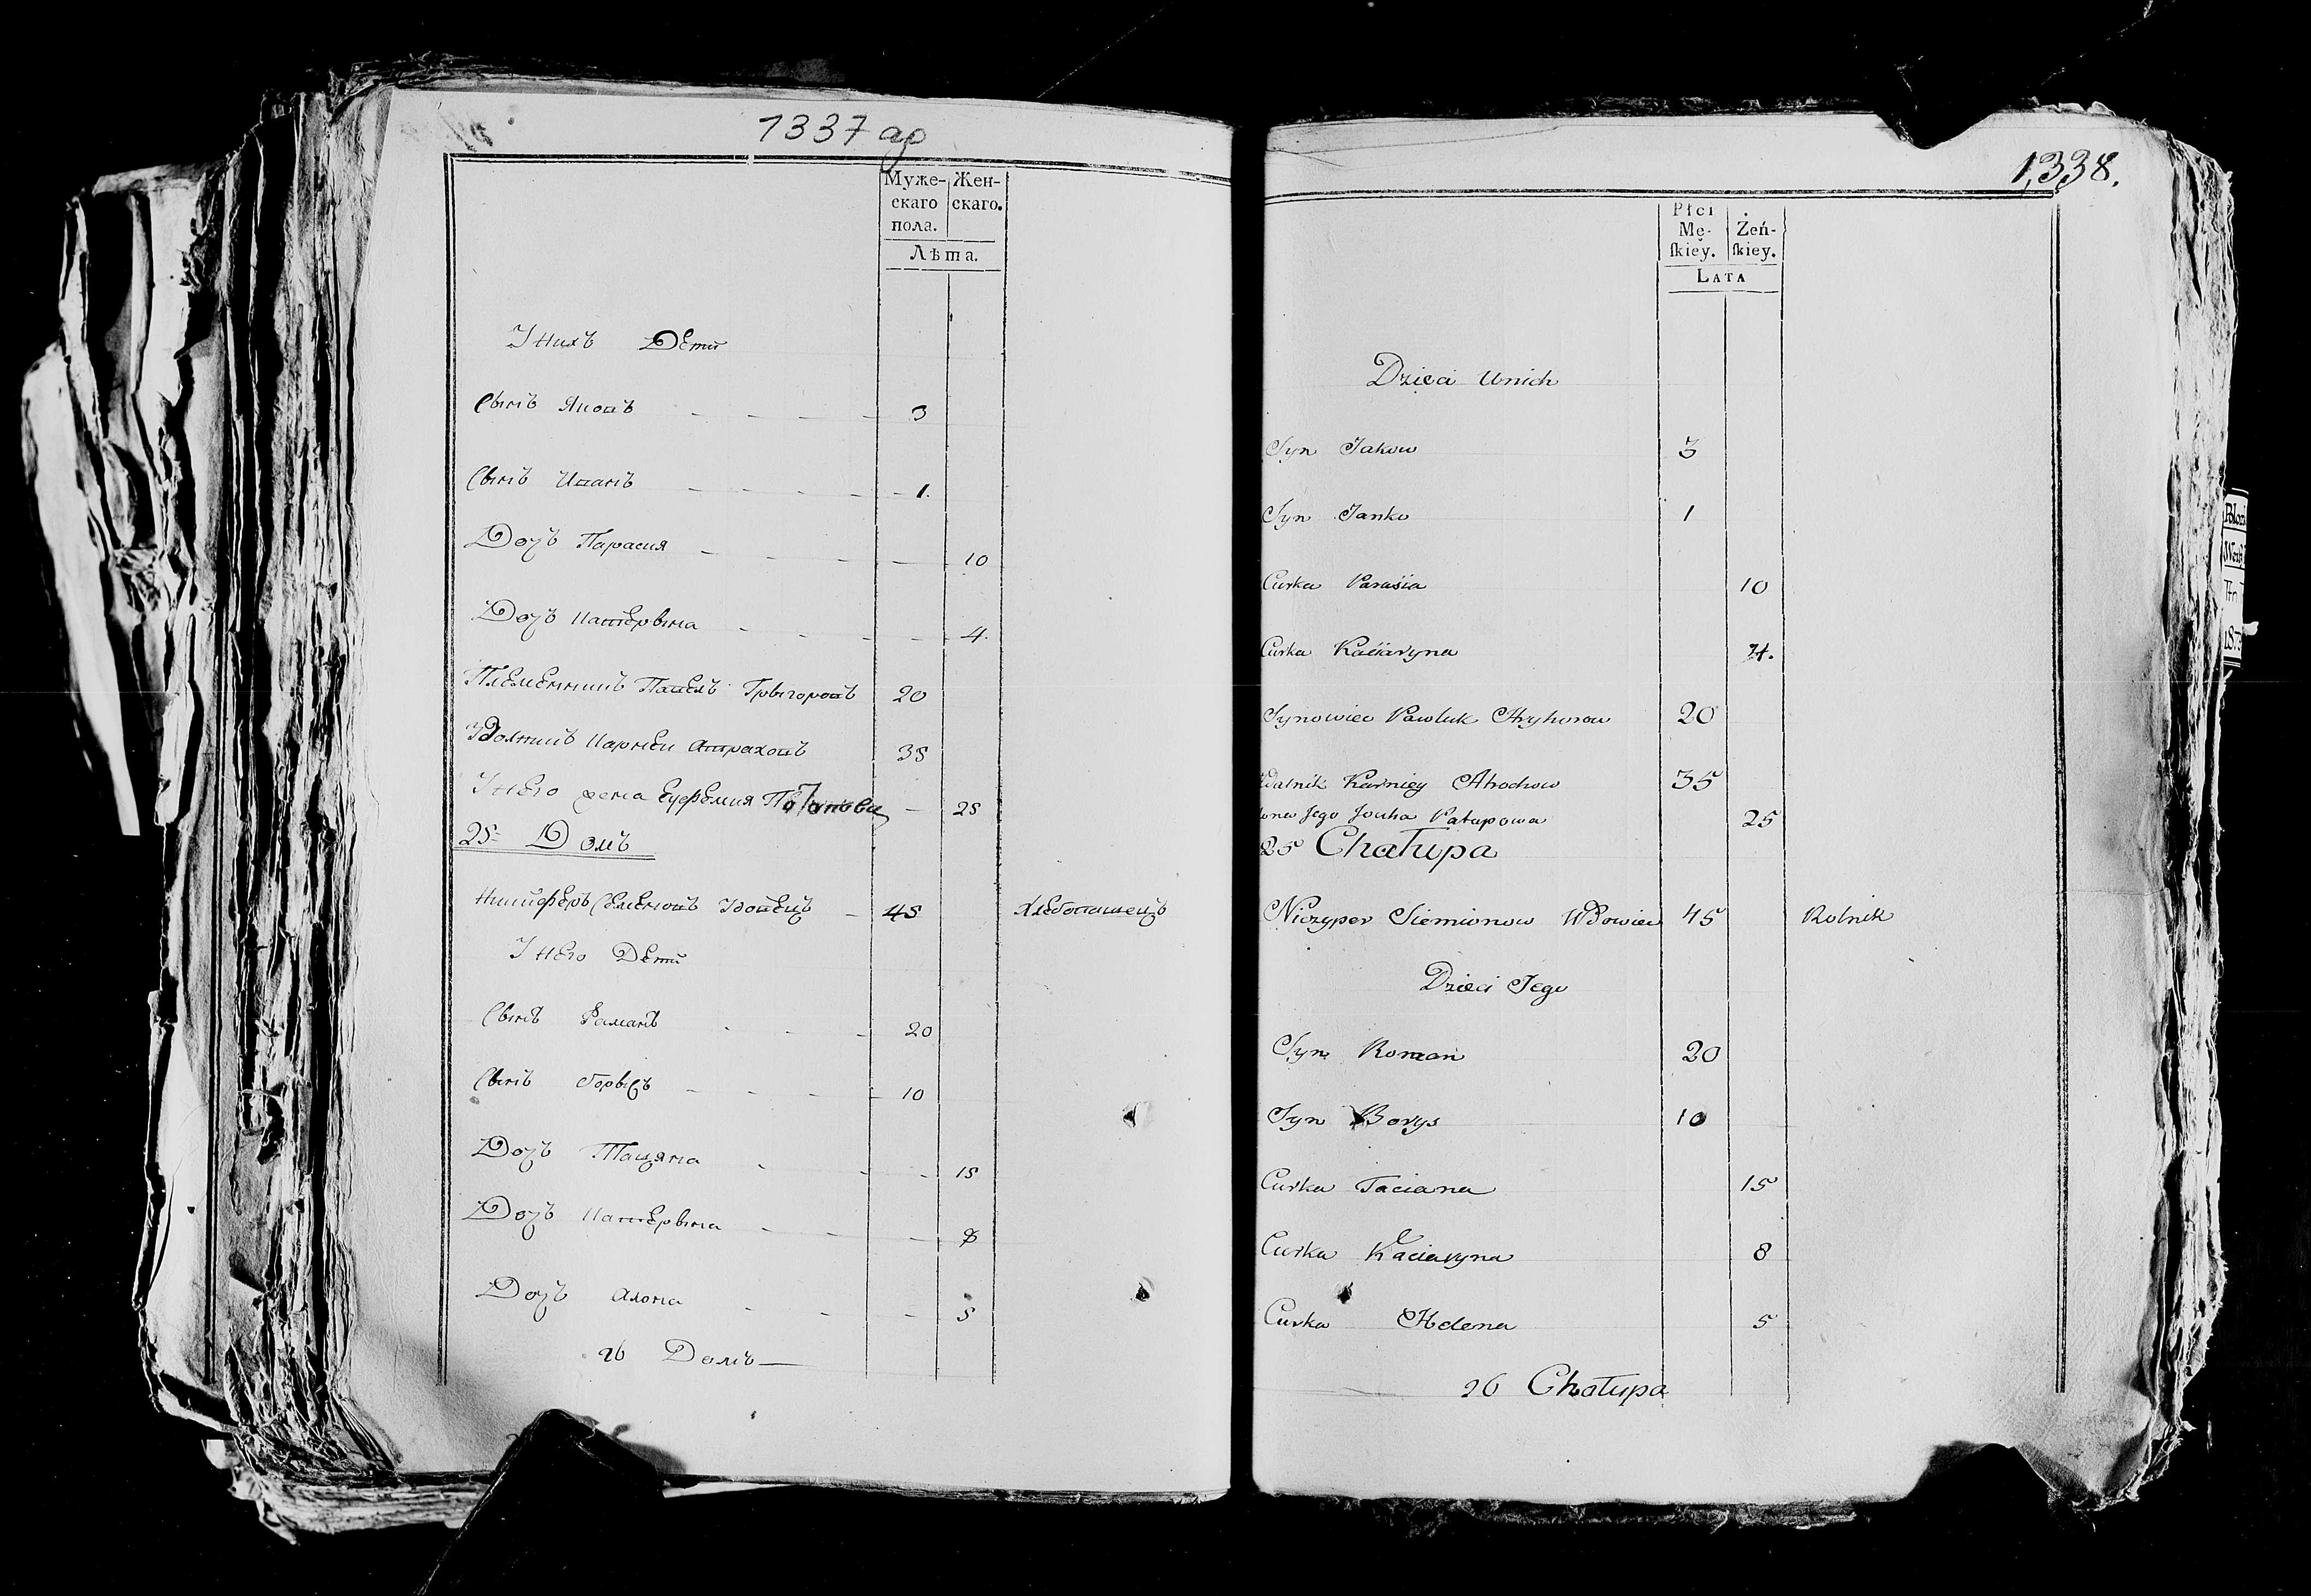 1337 ар
Муже- Жен-
скаго скаго.
пола.
Лѣта.
У нихъ Дети
Сынъ Яковъ 3
Сынъ Иванъ 1.
Дочъ Парасия 10
Дочъ Катерына 4.
Племенникъ Павелъ Грыгоровъ 20
Карней Атраховъ 35
У него жена Еуфемия 25
25 Домъ
Никиферъ Семеновъ Удовецъ 45 Хлебопашецъ
У него Дети
Сынъ Раманъ 20
Сынъ Борысъ 10
Дочъ Тацяна 15
Дочъ Катерына 8
Дочъ Алона 5
26 Домъ
1,338.
Płci
Mę- Żeń-
ſkiey. ſkiey.
LATA
Dzieci Unich
Syn Jakow 3
Syn Janko 1
Curka Parasia 10
Curka Kaciaryna 4.
Synowiec Pawluk Hryhorow 20
Karniey Atrochow 35
Jego Jouha Patapowa 25
25 Chałupa
Niczyper Siemionow Wdowiec 45 Rolnik
Dzieci Jego
Syn Roman 20
Syn Borys 10
Curka Taciana 15
Curka Kaciaryna 8
Curka Helena 5
26 Chałupa